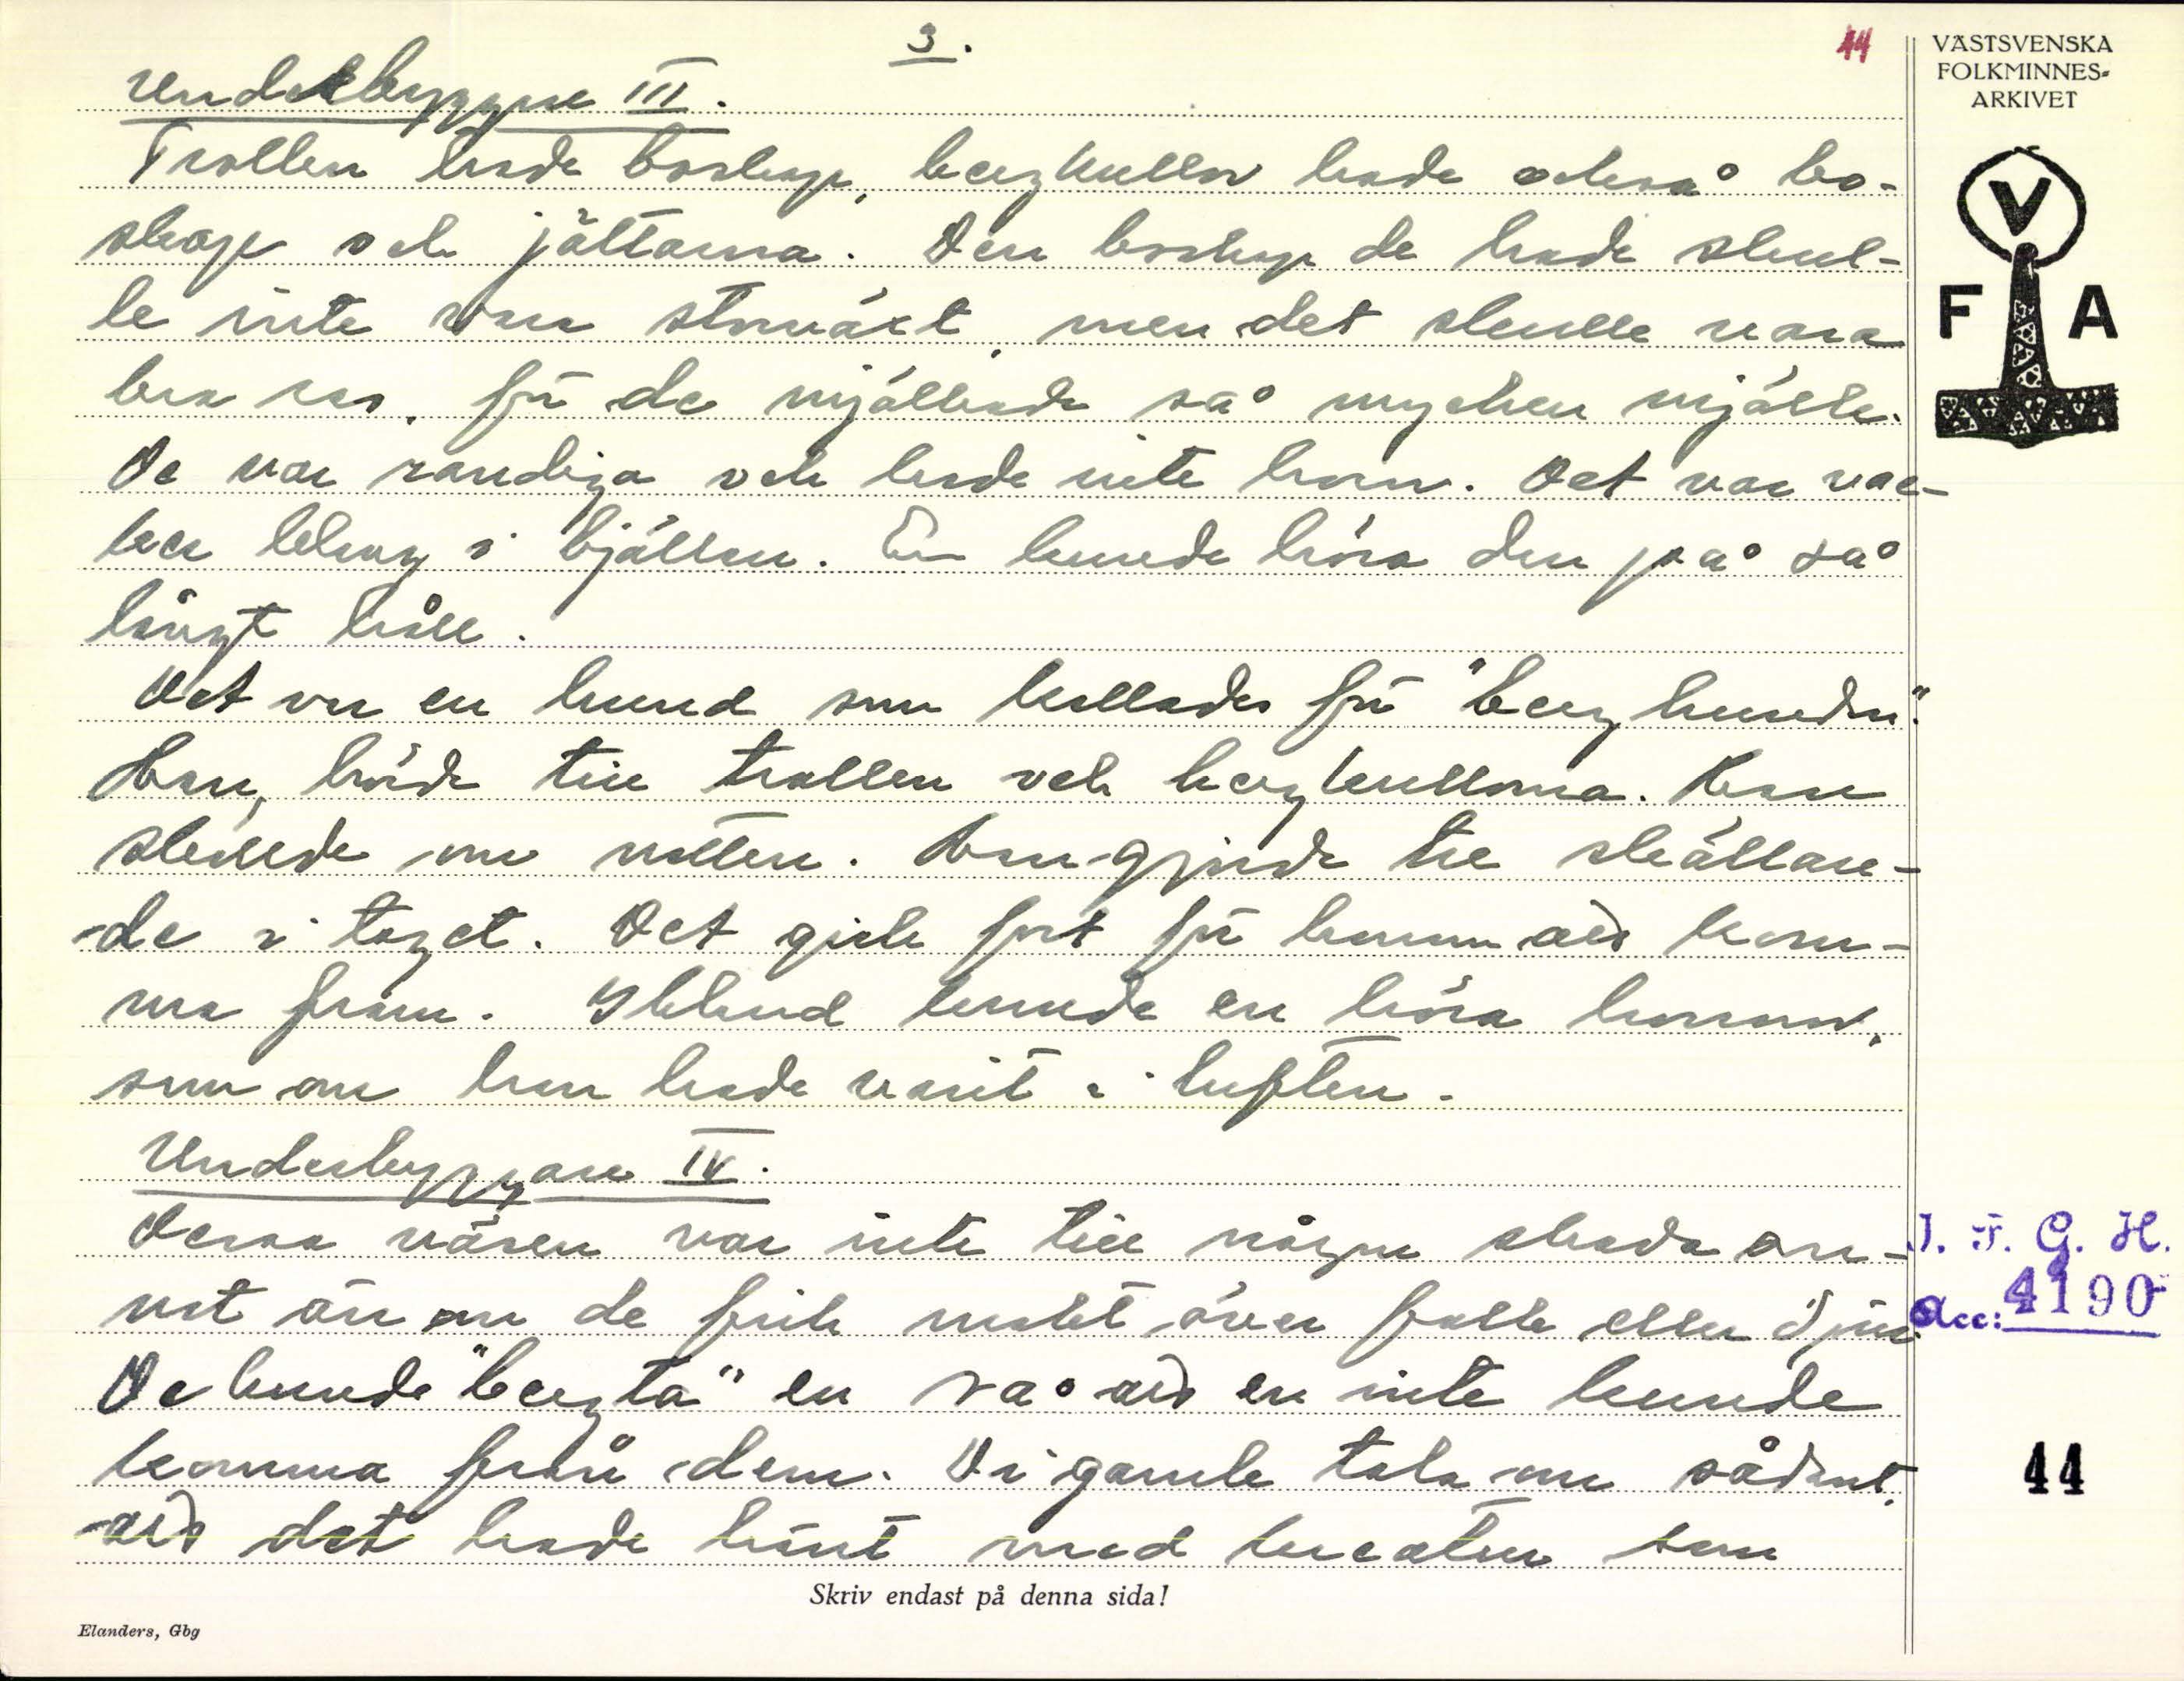 3.
44
VÄSTSVENSKA
FOLKMINNES-
ARKIVET
V
F A
Underbyggare III.
Trollen hade boskap, bergkullor hade också bo-
skap och jättarna. Den boskap de hade skul-
le inte vara storväxt, men det skulle vara
bra ras, för de mjölkade så mycken mjölk.
De var randiga och hade inte horn. Det var vac-
ker klang i bjällan. En kunde höra den på så
långt håll.
Det var en hund som kallades för "berghunden".
Han hörde till trollen och bergkullorna. Han
skällde om natten. Han gjorde tre skällan-
de i taget. Det gick fort för honom att kom-
ma fram. Ibland kunde en höra honom,
som om han hade varit i luften.
Underbyggare IV.
Dessa väsen var inte till någon skada an-
nat än om de fick makt över folk eller djur
De kunde "bergta" en så att en inte kunde
komma från dem. Di gamle tala om sådant,
att det hade hänt med kreatur som
Skriv endast på denna sida!
Elanders, Gbg
I. F. G. H.
Acc: 4190
44